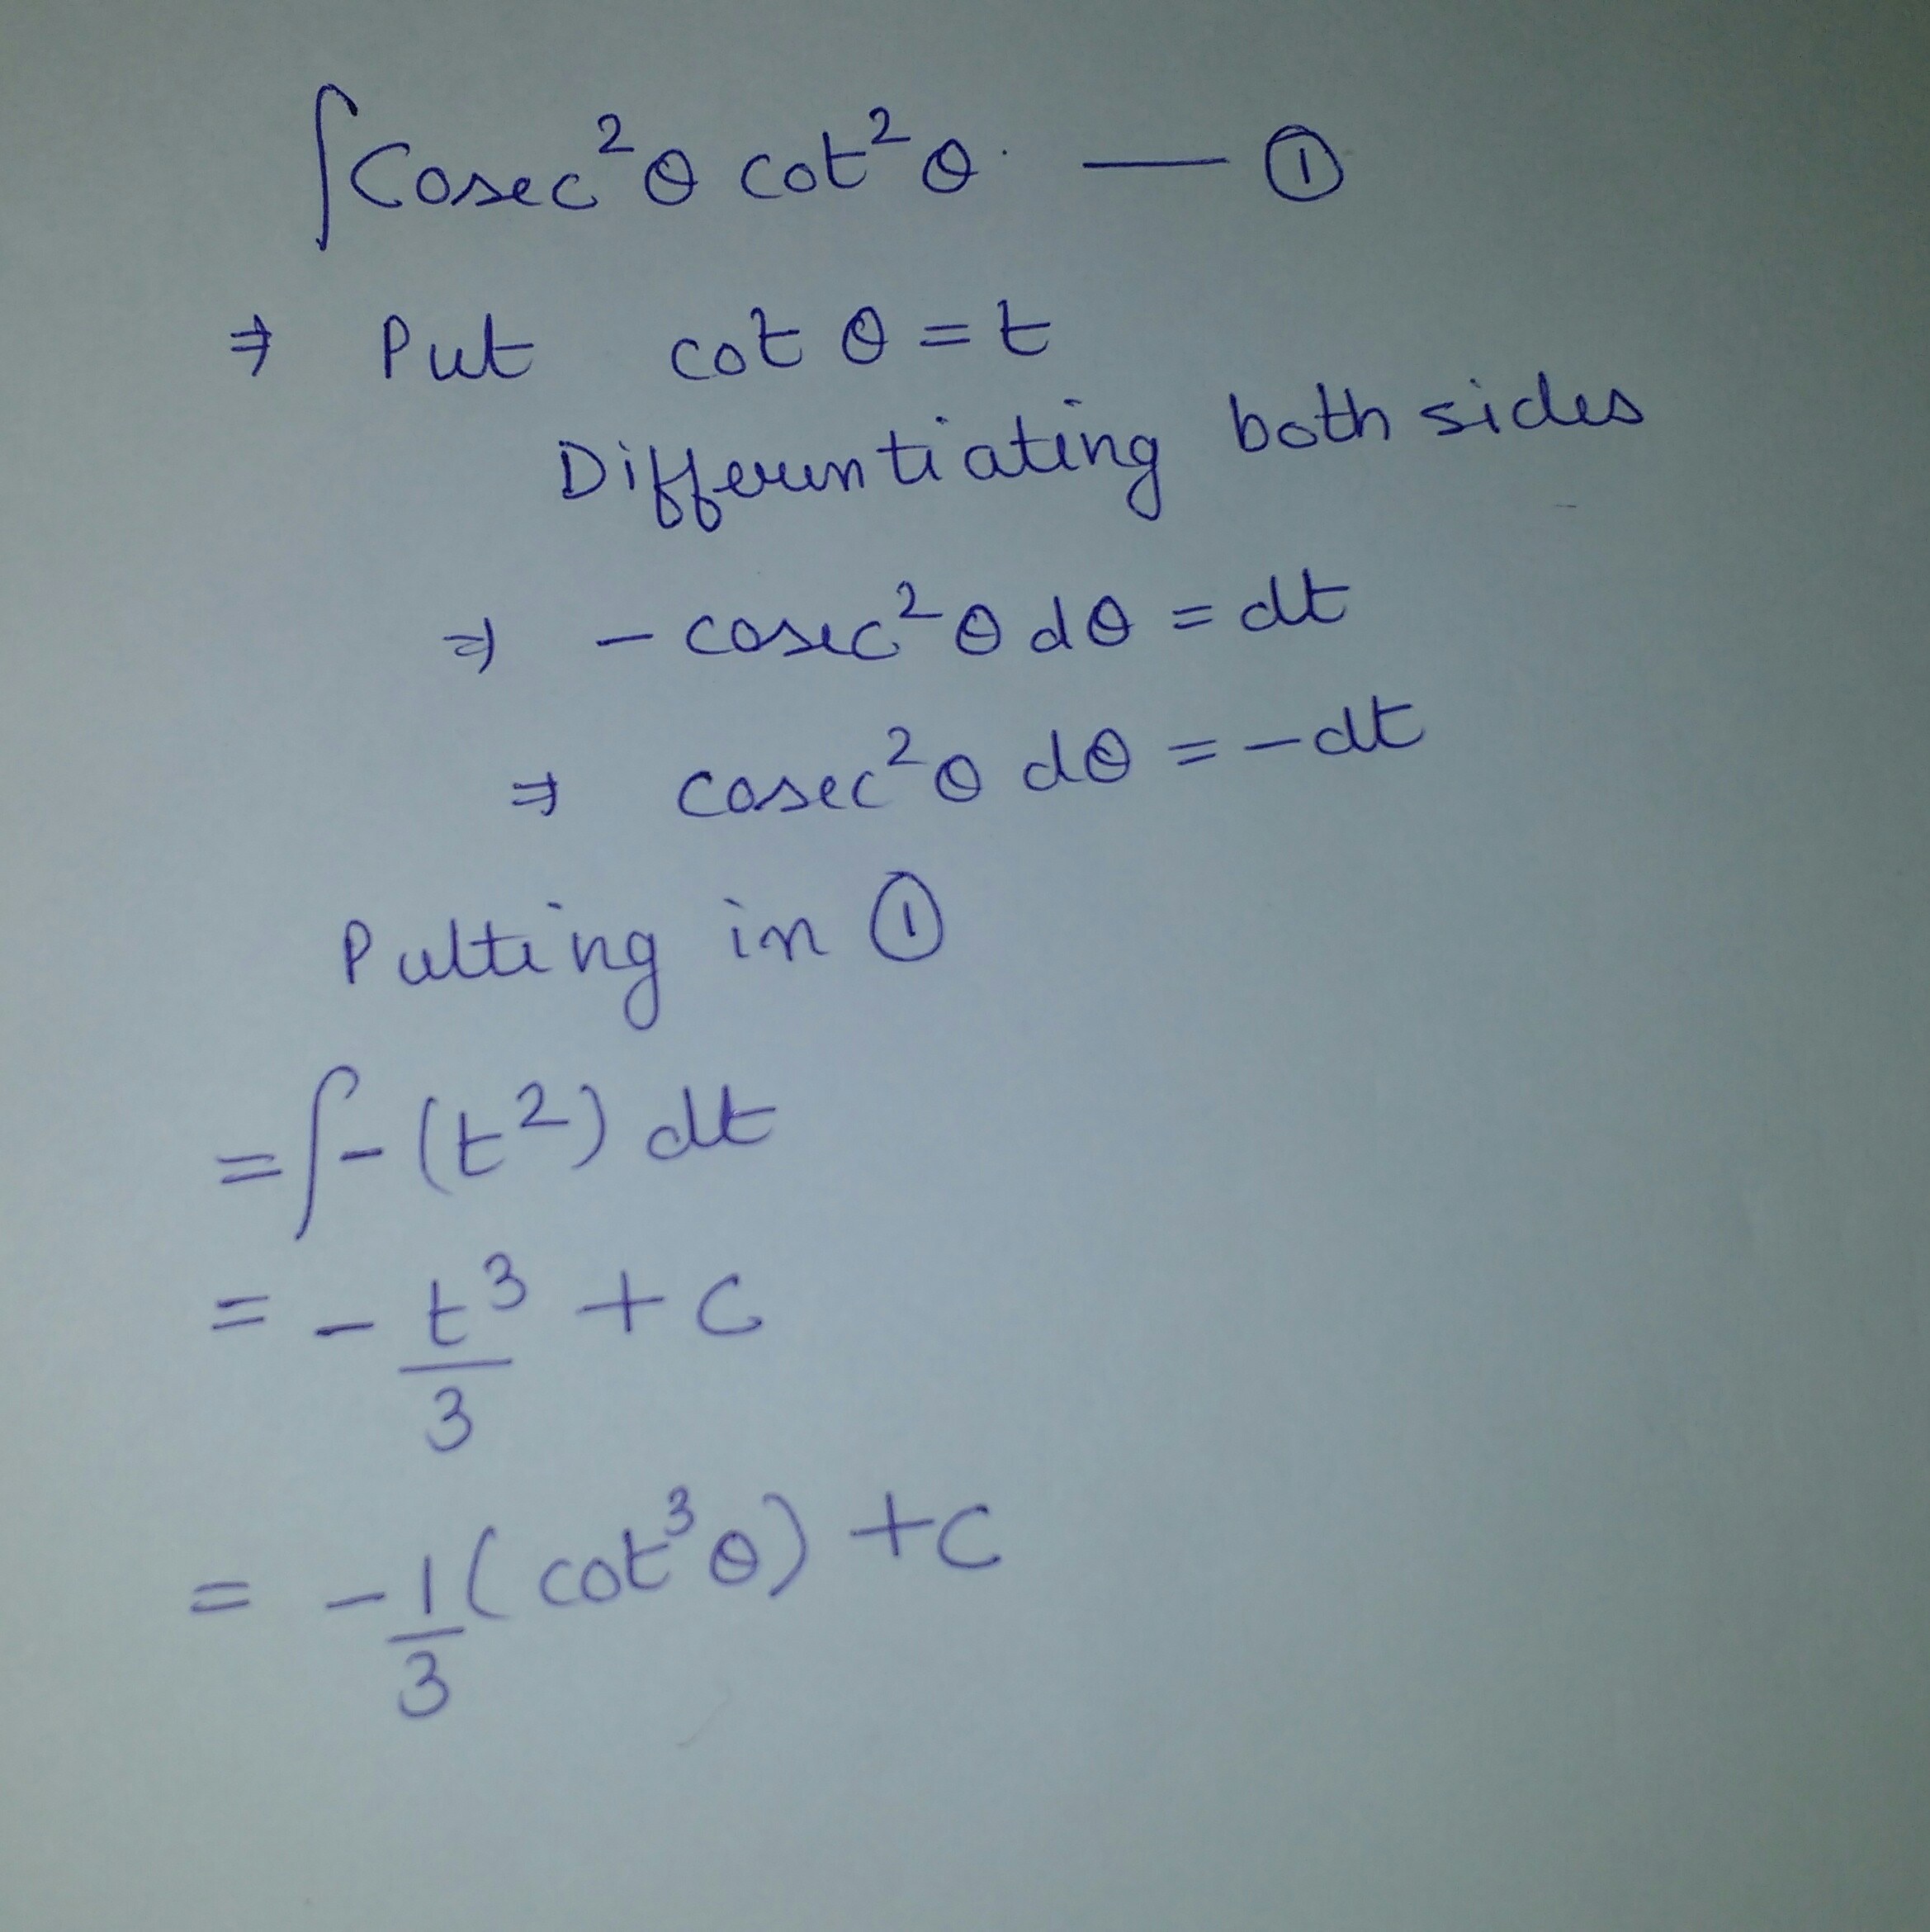 ∫Cosec²θ cot²θ. — ①
⇒ Put cot θ = t
Differentiating both sides
⇒ - cosec²θ dθ = dt
⇒ cosec²θ dθ = -dt
Putting in ①
= ∫-(t²) dt
= - t³/3 + c
= - 1/3 (cot³θ) + c